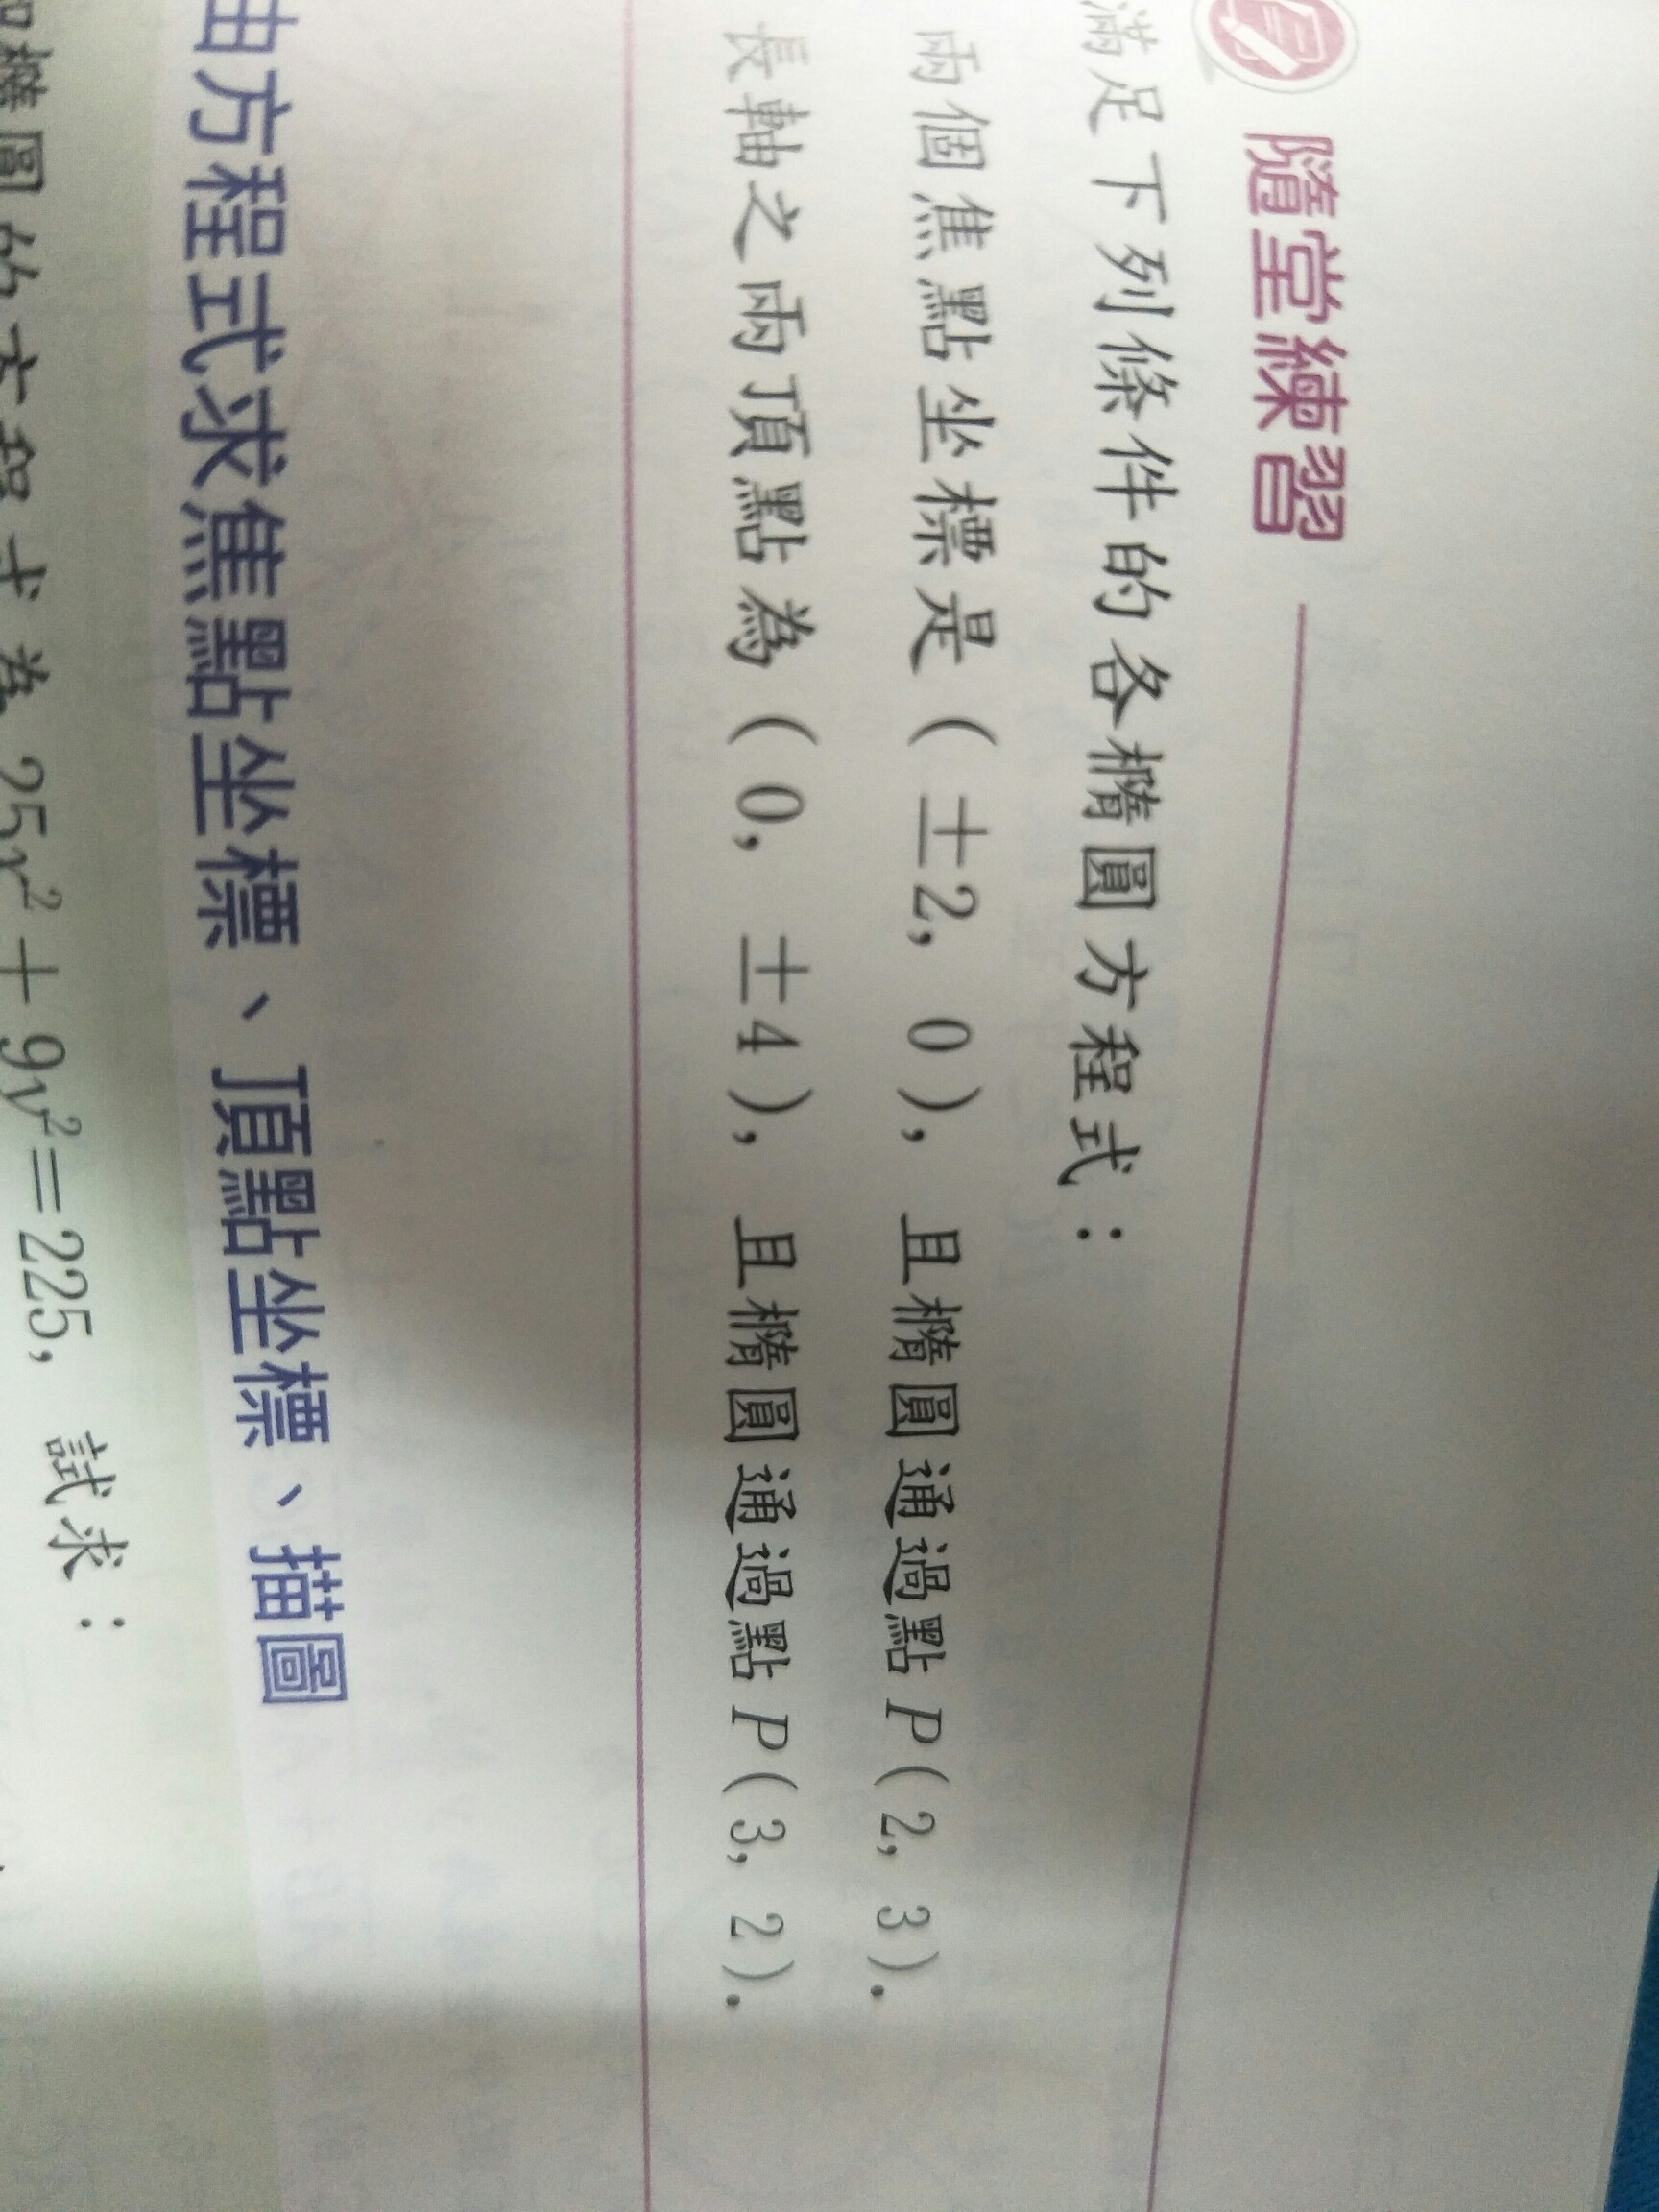 隨堂練習
滿足下列條件的各橢圓方程式：
兩個焦點坐標是(±2, 0), 且橢圓通過點P(2, 3).
長軸之兩頂點為(0, ±4), 且橢圓通過點P(3, 2).
由方程式求焦點坐標、頂點坐標、描圖
橢圓的方程式為25x²+9y²=225, 試求：